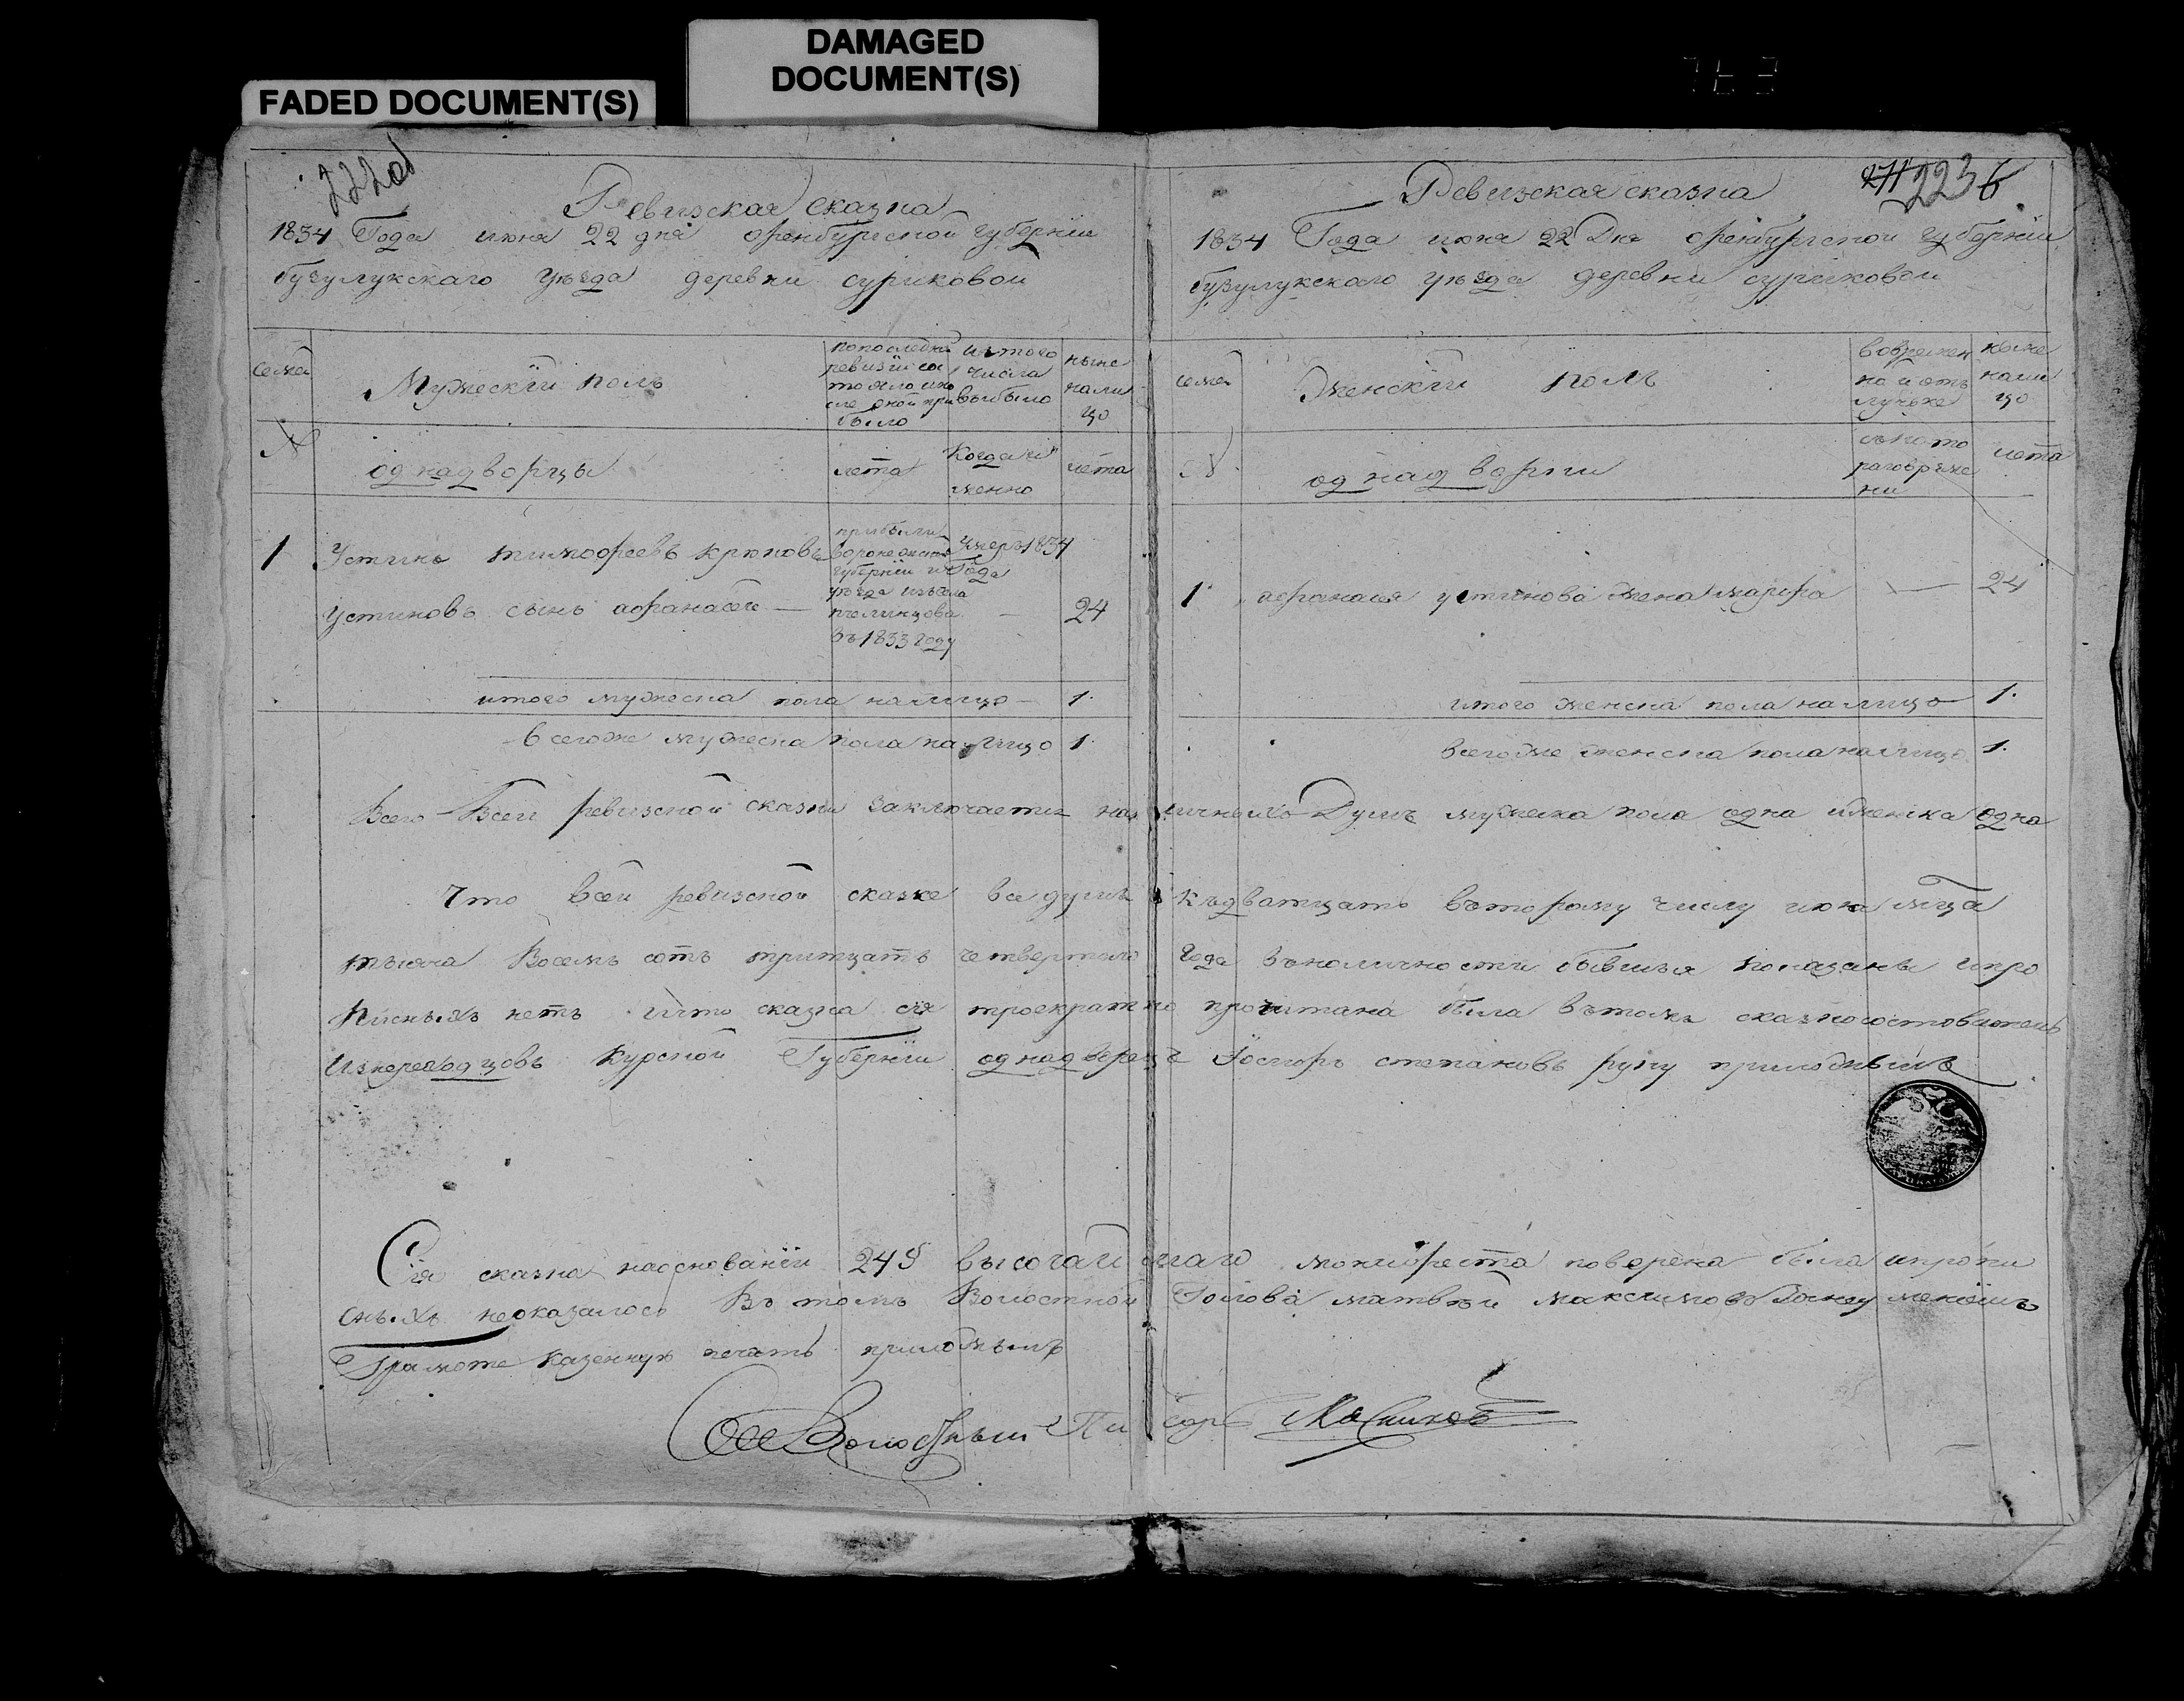 FADED DOCUMENT(S)
DAMAGED
DOCUMENT(S)
222об
Ревизская сказка
1834 Года июня 22 дня оренбургской губернїи
бузулукскаго уѣзда деревни суриковой
семьи
Мужескїй полъ
попоследней
ревизїи со
тояло ипо
сле оной при
было
изтого
числа
выбыло
ныне
нали
цо
№
однадворцы
лета
Когда и
менно
лета
1
Устинъ тимофеевъ крюковъ
прибыли
воронежской
губернїи
уезда изсела
въ1833 году
умеръ1834
Года
Устиновъ сынъ афанасей — — 24
итого мужеска пола налицо — 1.
всегоже мужеска пола налицо 1
223
Ревизская сказка
1834 Года июня 22 Дня оренбургской губернїи
бузулукскаго уѣзда деревни суриковой
семьи
Женскїй полъ
вовремен
ной отъ
лучьке
ныне
нали
цо
№
однадворки
лета
1. афанасья устинова жена марфа — 24
итого женска пола налицо 1.
всегоже женска пола налицо 1.
Всего Всей ревизской сказки заключается наличныхъ Душъ мужеска пола одна иженска одна
Что всей ревизской сказке все души къдватцать второму числу июня мца
тысяча Восемь сотъ тритцать четвертаго Года вналичности бывшыя показаны ипро
писныхъ нетъ ичто сказка сїя троекратно прочитана была вътомъ
Изпереходцовъ Курской Губернїи однадворецъ степановъ руку приложилъ
Сїя сказка наоснованїи 24§ высочайшаго монифеста поверена была ипропи
сныхъ неоказалось Въ томъ Волостной Голова матвей максимовъ
Грамоте казенную печать приложилъ
Волостный Писарь